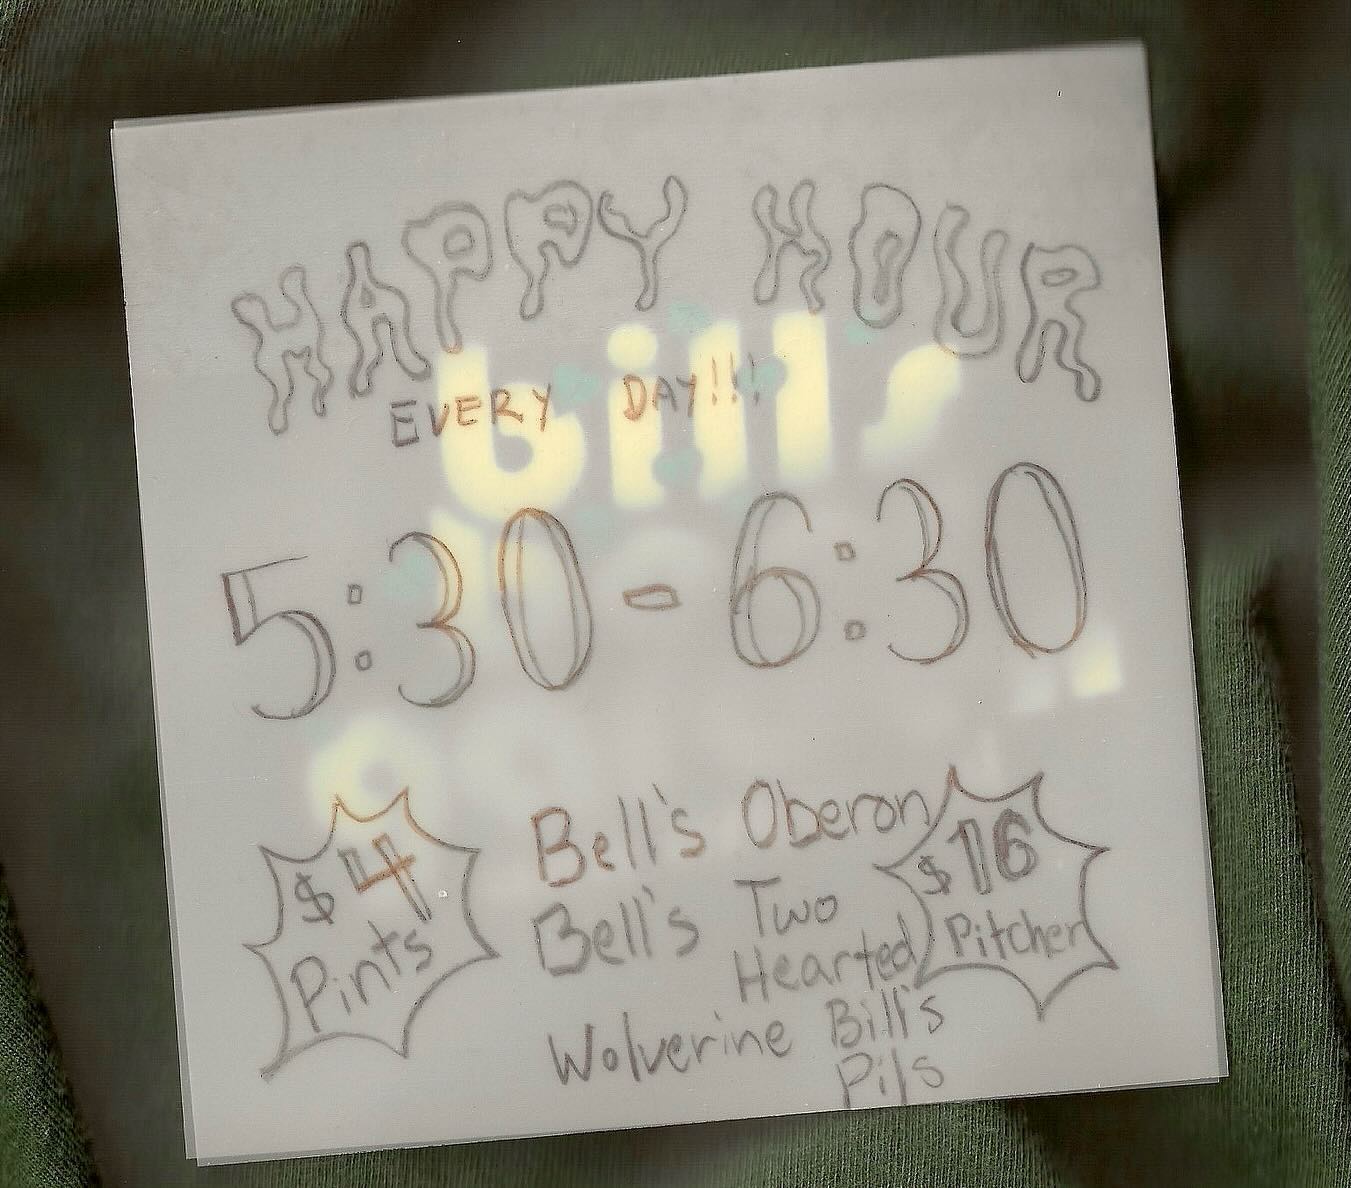 HAPPY HOUR
bill's
EVERY DAY!!!
5:30 - 6:30
$4
Pints
Bell's Oberon
Bell's Two
Hearted
Wolverine Bill's
Pils
$16
Pitcher